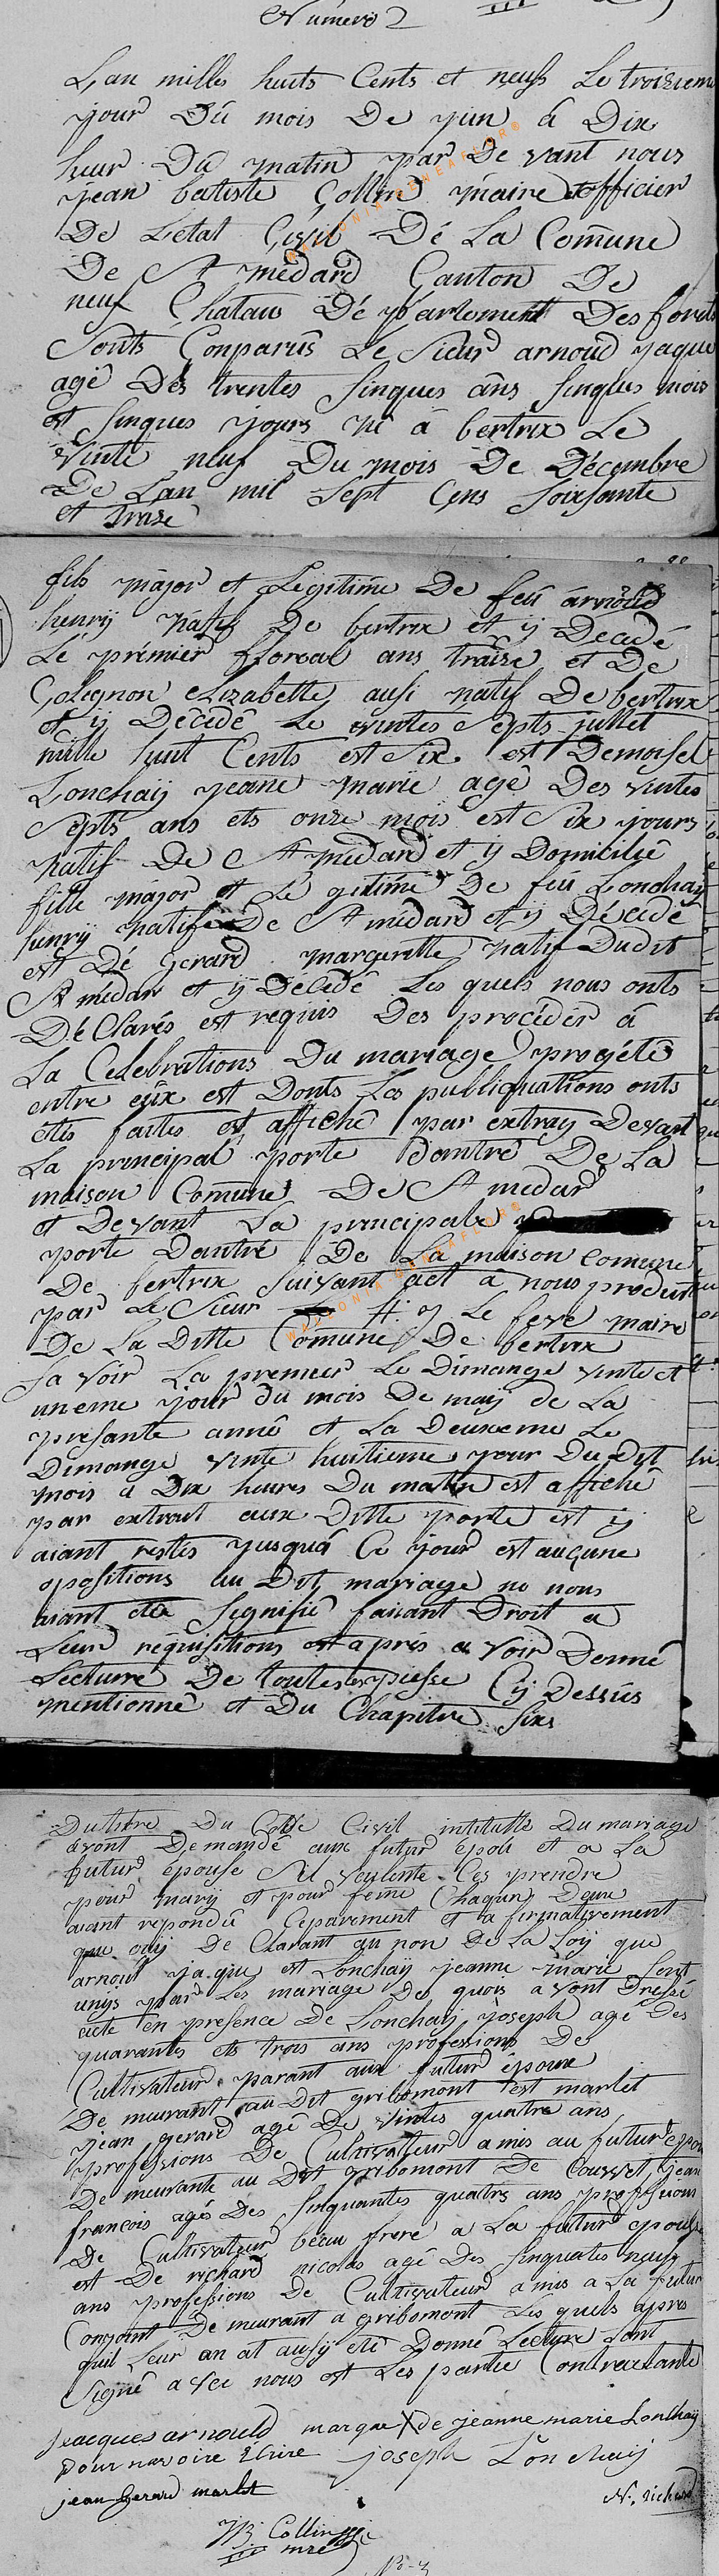 Numero 2
L'an milles huits Cents et neufs Le troisieme
jour Du mois De juin à Dix
heur Du matin par De vant nous
jean batiste Collin maire et officier
De L'etat Civil De La Comune
De St médard Canton De
neuf Chataus Dé partement Des forets
Sonts Conparus Le Sieur arnoud jaque
agé Dés trentes Sinques ans Sinques mois
est Sinques jours né à bertrix Le
vinte neuf Du mois De Décembre
De L'an mil Sept Cens Soixsante
et traise
fils major et Legitime De feu arnoud
henrij natif De bertrix et ij Decidé
Le prémier floreal ans traise et De
Colignon elizabette ausi natif De bertrix
et ij Décidé Le vintes Septs jullet
mille huit Cents est Six est Demoisel
Lonchaij jeane marie agé Des vintes
Septs ans ets onse mois est Six jours
natif De St médard et ij Domicilié
fille major et Lé gitimé De feu Lonchaij
henrij natif De St médard et ij Décedé
est Dé gerard margeritte natif Dudit
St médar et ij Décedé Les quels nous onts
Dé Clarés est requis Des procéder à
La Celebrations Du mariage progétés
entre eux est Donts Les publiquations onts
étés faites est affiché par extraij Devant
La principal porte dantré De La
maison Comune De St medar
et Devant La principale
porte Dantré De La maison Comune
De bertrix Suivant act à nous produit
par Le Sieur H: j Le fevre maire
De La Ditte Comune De bertrix
Sa voir La premier Le Dimange vinte et
uneme jour du mois De maij de La
presante anné et La Deuxeme Le
Dimange vinte huitieme jour Du Dit
mois a Dix heures Du matin est affiché
par extrait aux Ditte porte est ij
aiant restés jusquá Ce jour est aucune
opositions au Dit mariage ne nous
aiant eté Segnifié faisant Droit a
Leur réquisitions est aprés a voir Donné
Lecture De toutes les piesse Cij Dessus
mentionné et Du Chapitre Sixs
Du titre Du Code Civil intitulé Du mariage
avont Demandé aux futur épou et a La
futur épouse Sil veulente Ces prendre
pour marij et pour feme Chaqun Deux
aiant repondu Ceparement et a firmativement
que ouij De Clarant au non De La Loij que
arnout ja que est Lonchaij jeanne marie Sont
unijs par Les mariage De quois a vont Dressé
acte en presence De Lonchaij joseph agé Des
quarantes ets trois ans professions De
Cultivateur parant aux futur époux
De meurant au Dit gribomont est marlet
jean gerard agé De vintes quatre ans
professions De Cultivateur amis au futur epou
De meurante au Dit gribomont De Couvet jean
francois agés Des Sinquantes quatres ans professions
De Cultivateur beau frere a La futur epouse
est De richard nicolas agé Des Sinquates neuf
ans professions De Cultivateur amis a La futur
Conjoint De meurant a gribomont Les quels apres
quil Leur an at ausij eté Donné Lecture Sont
Signé a vec nous est Les partie Contractante
jacques arnould marque X de jeanne marie Lonchaij
pour navoire Ecrire joseph Lonchaij
jean Gerard marlet N: richard
JB Collin
mre